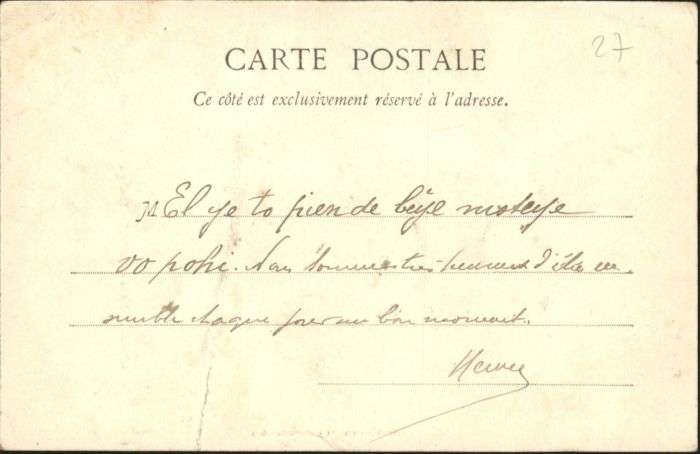 27
CARTE POSTALE
Ce côté est exclusivement réservé à l'adresse.
M El ye to pien de
vo pohi. Nous sommes très heureux d'être en
semble chaque jour un bon moment.